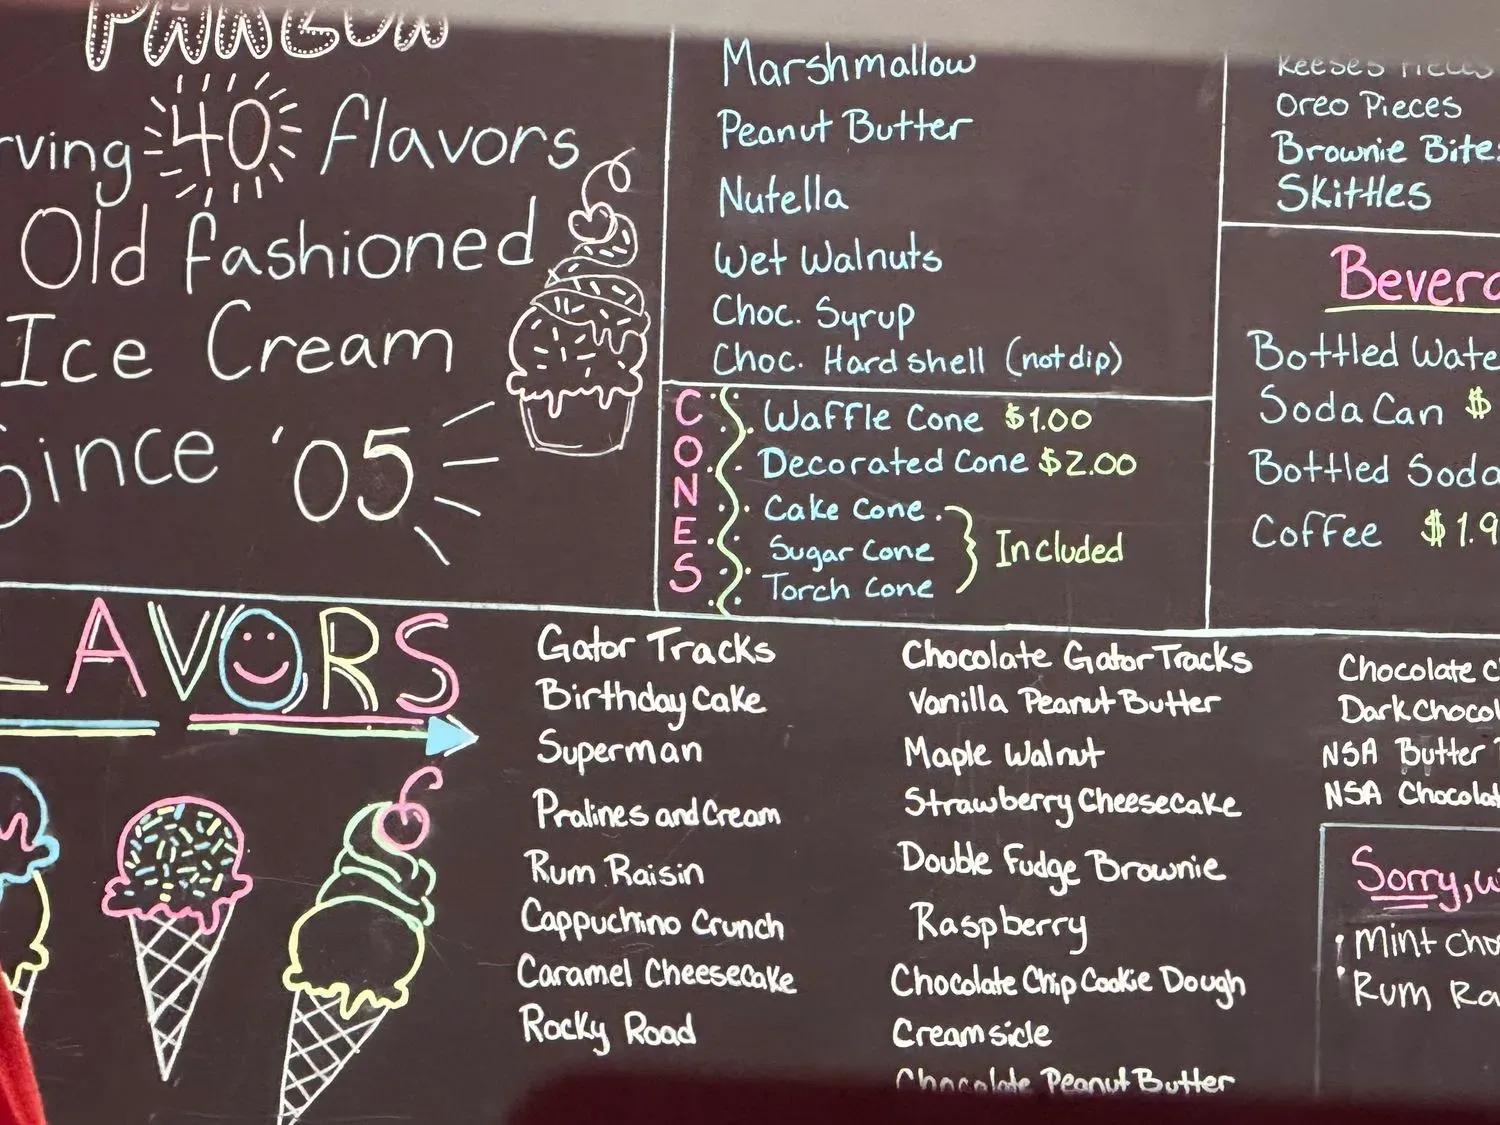 40 flavors
Old fashioned
Ice Cream
Since '05
Marshmallow
Peanut Butter
Nutella
Wet Walnuts
Choc. Syrup
Choc. Hard shell (not dip)
Reeses Pieces
Oreo Pieces
Brownie Bites
Skittles
CONES
Waffle Cone $1.00
Decorated Cone $2.00
Cake Cone
Sugar Cone
Torch Cone
Included
Bottled
Soda Can $
Bottled Soda
Coffee $1.9
LAVORS
Gator Tracks
Birthday Cake
Superman
Pralines and Cream
Rum Raisin
Cappuchino Crunch
Caramel Cheesecake
Rocky Road
Chocolate Gator Tracks
Vanilla Peanut Butter
Maple Walnut
Strawberry Cheesecake
Double Fudge Brownie
Raspberry
Chocolate Chip Cookie Dough
Creamsicle
Chocolate Peanut Butter
Chocolate
Dark
NSA Butter
NSA
Sorry,
Mint
Rum